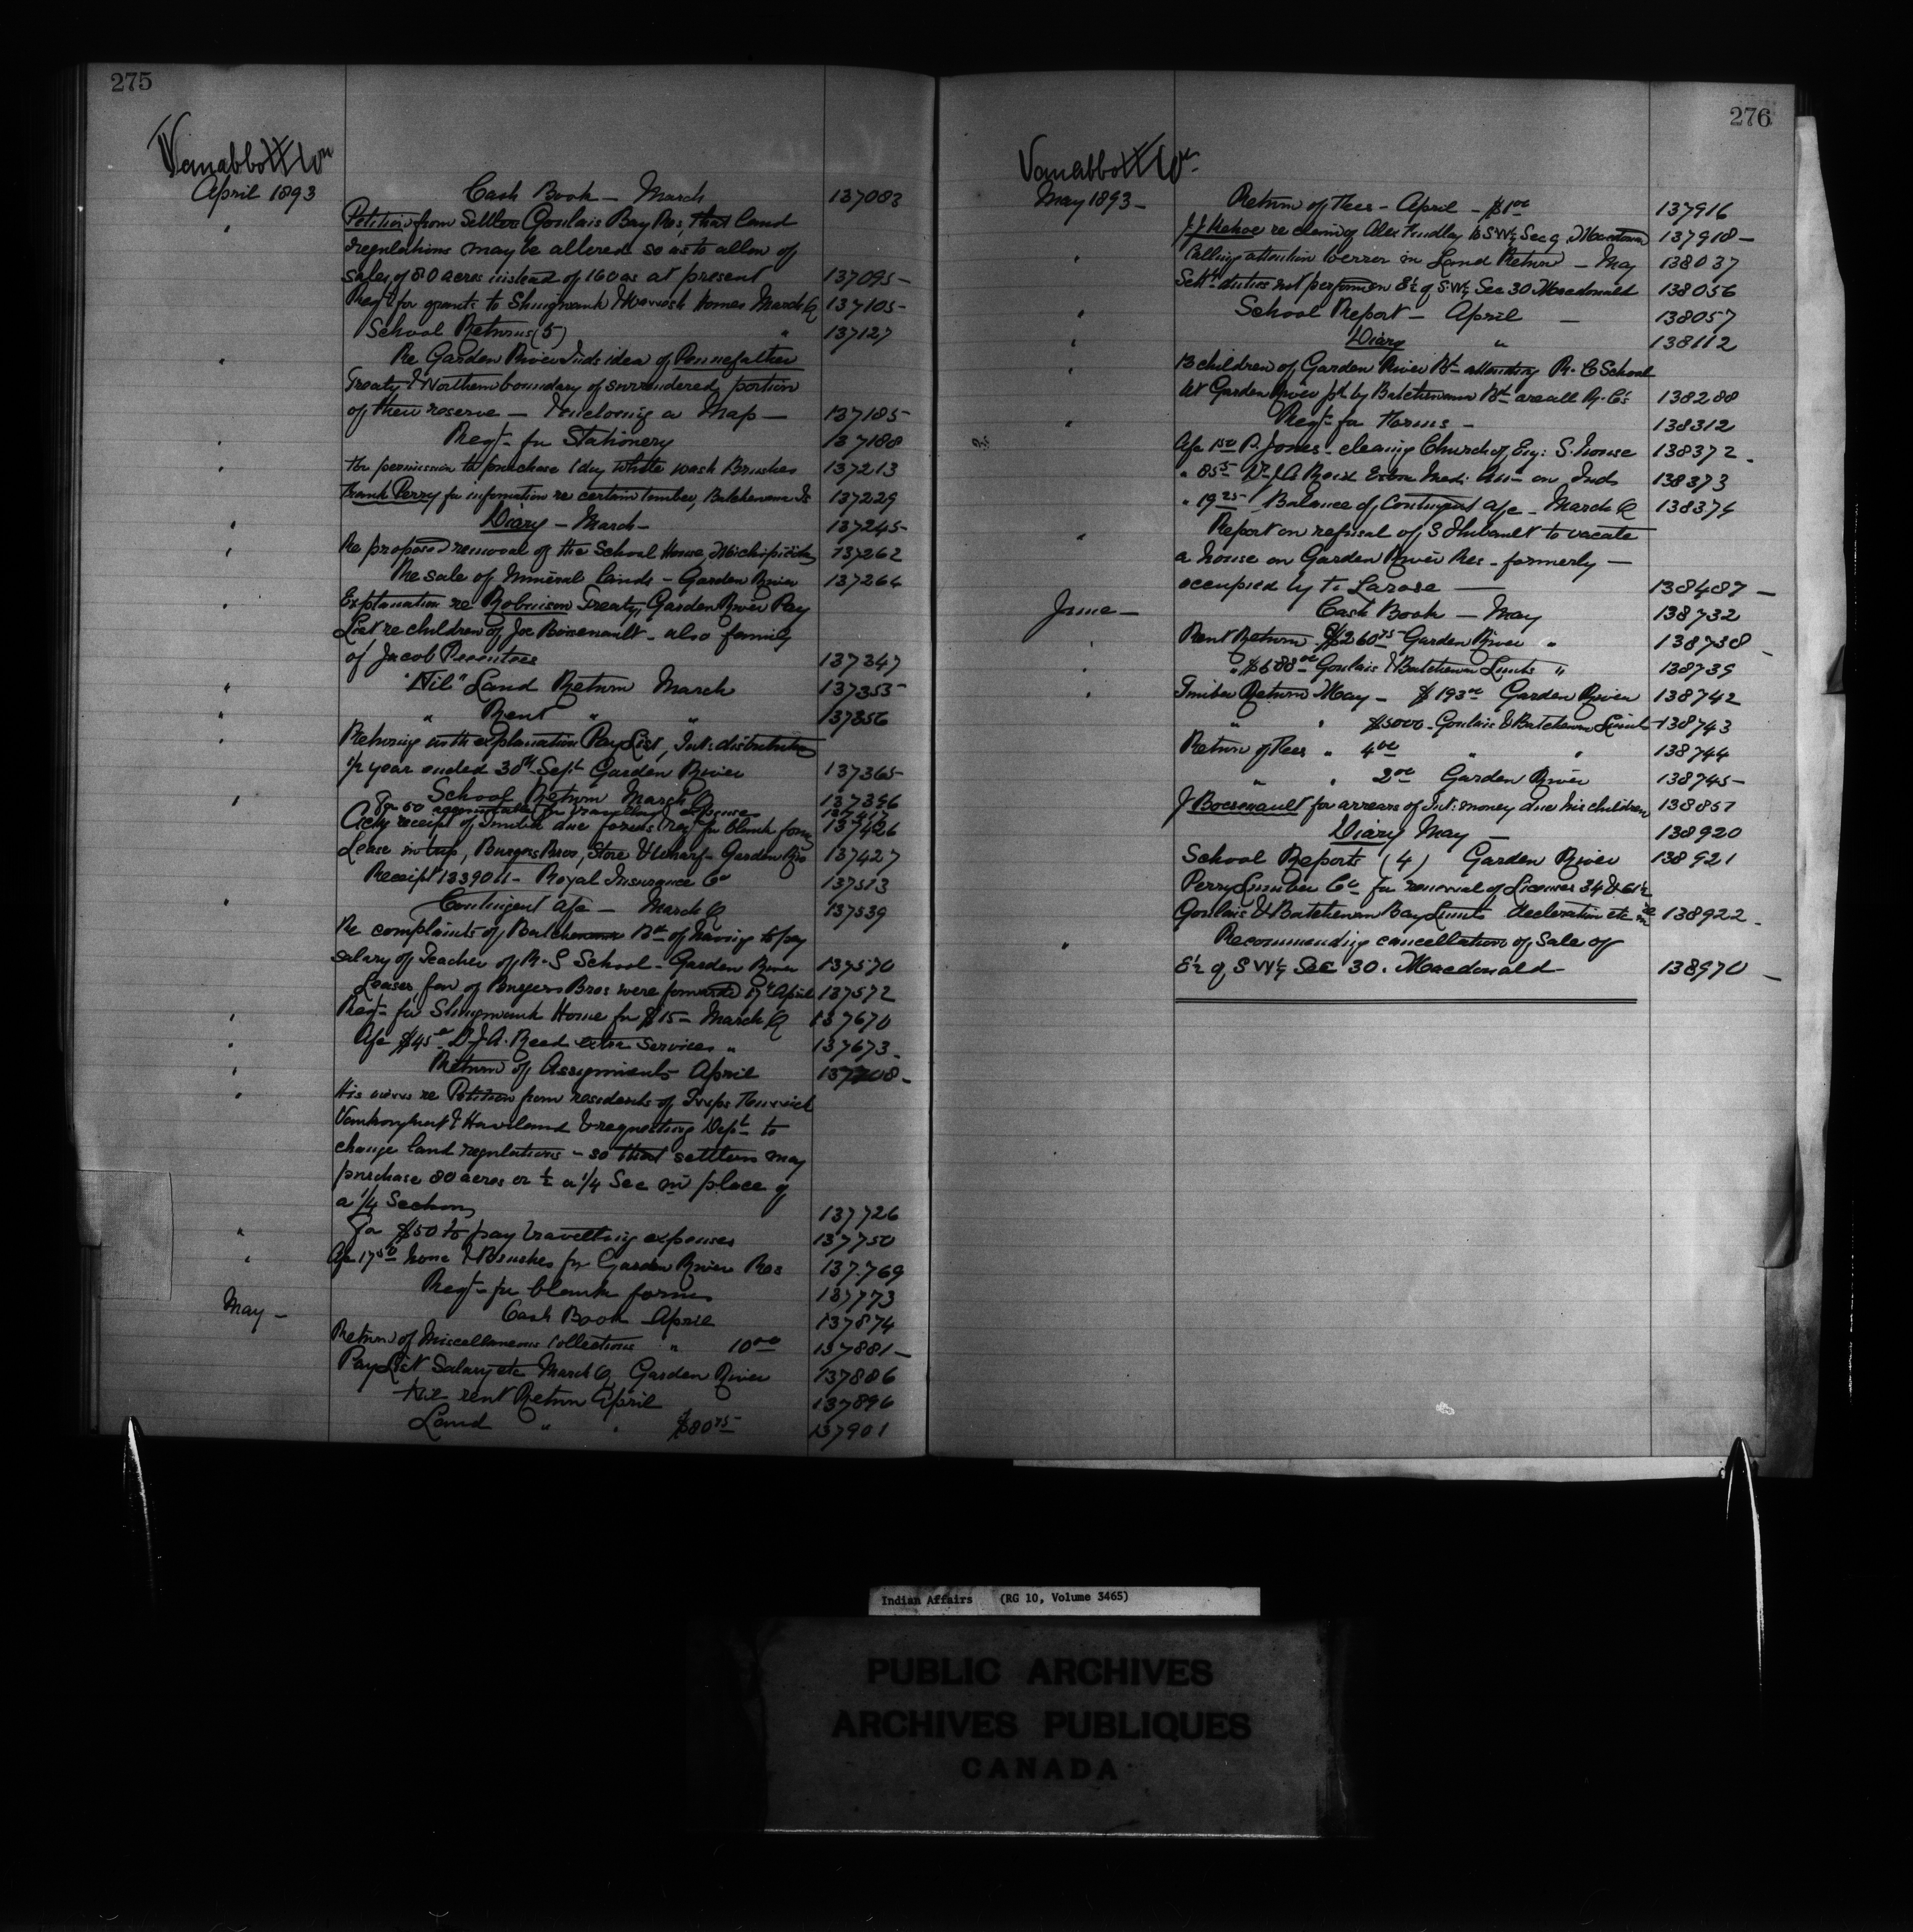 275
Vanabbott Wm
April 1893 Cash Book — March 137083
Petition from Settlers Goulais Bay Res, that land
regulations may be altered so as to allow of
sales of 80 acres instead of 160 as at present 137095 -
Reqt for grants to Shingwauk & Wawanosh Homes March Q 137105 -
School Returns (5) " 137127
Re Garden River Inds idea of Pennefather
Treaty & Northern boundary of surrendered portion
of their reserve — Enclosing a Map — 137185
Reqt- for Stationery 137188
For permission to purchase 1 doz white wash Brushes 137213
Frank Perry for information re certain timber, Batchewana Is 137229
Diary — March — 137245 -
Re proposed removal of the School House, Michipicoten 137262
Re sale of mineral lands — Garden River 137264
Explanation re Robinson Treaty, Garden River Pay
List re children of Joe Boisenault - also family
of Jacob 137347
"Nil" Land Return March 137353
" Rent " " 137356
Returning with explanation Pay List, Int: distribution
1/2 year ended 30th Sept Garden River 137365
School Return March Q 137396
For 50 for travelling expenses 137417
Ackg receipt of timber due forms Req for blank forms 137426
Lease in trip, Burgess Bros, Store & Wharf - Garden Riv 137427
Receipt 1339011 - Royal Insurance Co 137513
Contingent a/c — March Q 137539
Re complaints of Batchewana Bd of having to pay
salary of Teacher of R. S School - Garden River 137570
Leases fav of Burgess Bros were forwarded 17th April 137572
Reqt- for Shingwauk Home for $15 - March Q 137670
A/c $45.00 Dr J.A. Reed extra services " 137673 -
Return of Assignments April 137708 -
His views re Petition from residents of Twps Fenwick
Vankoughnet & Haviland & requesting Dept to
change land regulations - so that settlers may
purchase 80 acres or 1/2 a 1/4 Sec in place of
a 1/4 Section 137726
For $50 to pay travelling expenses 137750
A/c 17 50 & Brushes for Garden River Res 137769
Reqt- for blank forms 137773
May - Cash Book April 137874
Return of Miscellaneous Collections " 10 00 137881 -
Pay List Salary etc March Q Garden River 137886
Nil rent Return April 137896
Land " " $80 75 137901
276
Vanabbott Wm
May 1893 - Return of Fees - April - $1 00 137916
J.J. Kehoe re claim of Alex Findlay to SW1/4 Sec 9, Macdonald 137918 -
Calling attention to error in Land Return - May 138037
Settlt duties not performed E1/2 of SW1/4 Sec 30 Macdonald 138056
School Report — April — 138057
Diary " 138112
13 children of Garden River Bd attending R. C School
at Garden River pd by Batchewana Bd are all R. C's 138288
Reqt- for Forms - 138312
A/c 1 50 P. Jones - cleaning Church of Eng: S. house 138372 -
" 85 Dr J.A. Reed Extra Med: Att- on Inds 138373
" 19 25 Balance of Contingent a/c - March Q 138374
Report on refusal of S Thibault to vacate
a house on Garden River Res - formerly —
occupied by Larose — 138487 -
June - Cash Book — May 138732
Rent Return $260 75 Garden River " 138738
" $688 00 Goulais & Batchewana Limits " 138739
Timber Return May - $193 00 Garden River 138742
" " $5000 - Goulais & Batchewana Limits 138743
Return of Fees " 4 00 " " 138744
" " 2 00 Garden River 138745 -
J Boissenault for arrears of Int: money due his children 138851
Diary May — 138920
School Reports (4) Garden River 138921
Perry Lumber Co for renewal of Licenses 34 & 61 1/2
Goulais & Batchewana Bay Limits declaration etc 138922 -
Recommending cancellation of Sale of
E1/2 of SW1/4 Sec 30. Macdonald - 138970 -
Indian Affairs (RG 10, Volume 3465)
PUBLIC ARCHIVES
ARCHIVES PUBLIQUES
CANADA